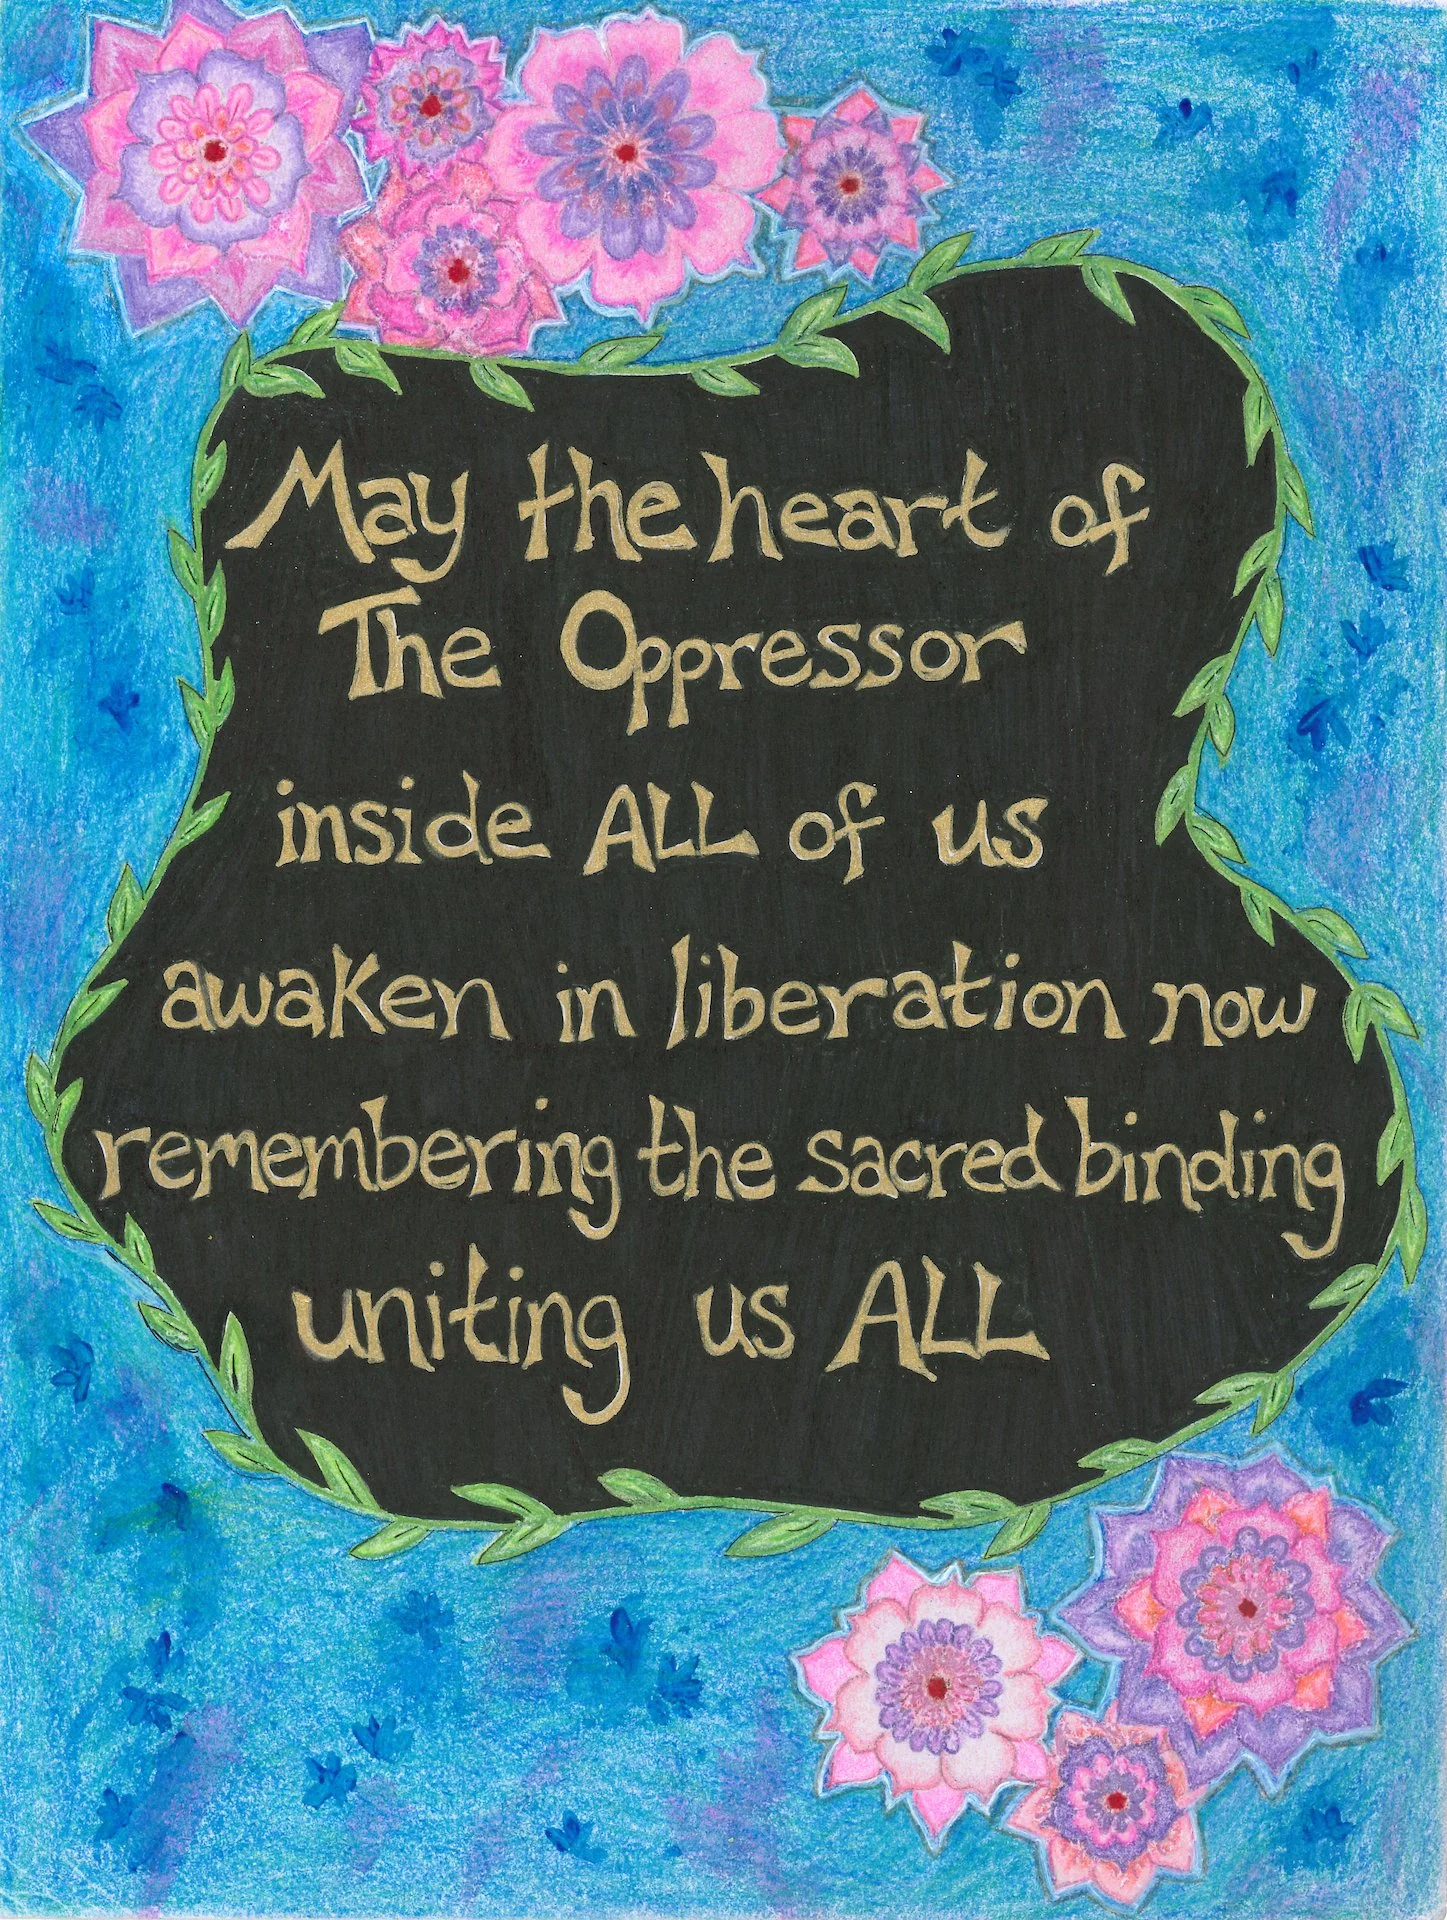 May the heart of
The Oppressor
inside ALL of us
awaken in liberation now
remembering the sacred binding
uniting us ALL